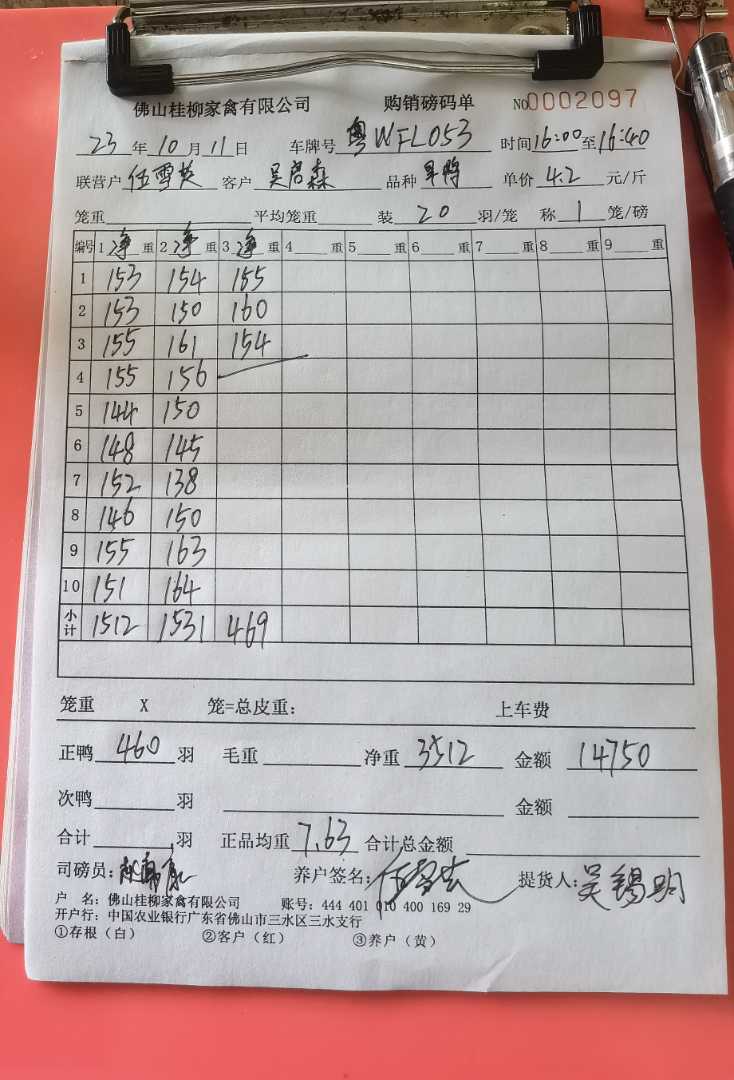 佛山桂柳家禽有限公司 购销磅码单 NO0002097
23年10月11日 车牌号 粤WFL053 时间16:00至16:40
联营户 伍雪英 客户 吴启森 品种 旱鸭 单价 4.2 元/斤
笼重 平均笼重 装 20 羽/笼 称 1 笼/磅
编号 1 净 重 2 净 重 3 净 重 4 重 5 重 6 重 7 重 8 重 9 重
1 153 154 155
2 153 150 160
3 155 161 154
4 155 156
5 144 150
6 148 145
7 152 138
8 146 150
9 155 163
10 151 164
小计 1512 1531 469
笼重 X 笼=总皮重: 上车费
正鸭 460 羽 毛重 净重 3512 金额 14750
次鸭 羽 金额
合计 羽 正品均重 7.63 合计总金额
司磅员: 养户签名: 提货人: 吴锡明
户 名: 佛山桂柳家禽有限公司 账号: 444 401 010 400 169 29
开户行: 中国农业银行广东省佛山市三水区三水支行
①存根（白） ②客户（红） ③养户（黄）